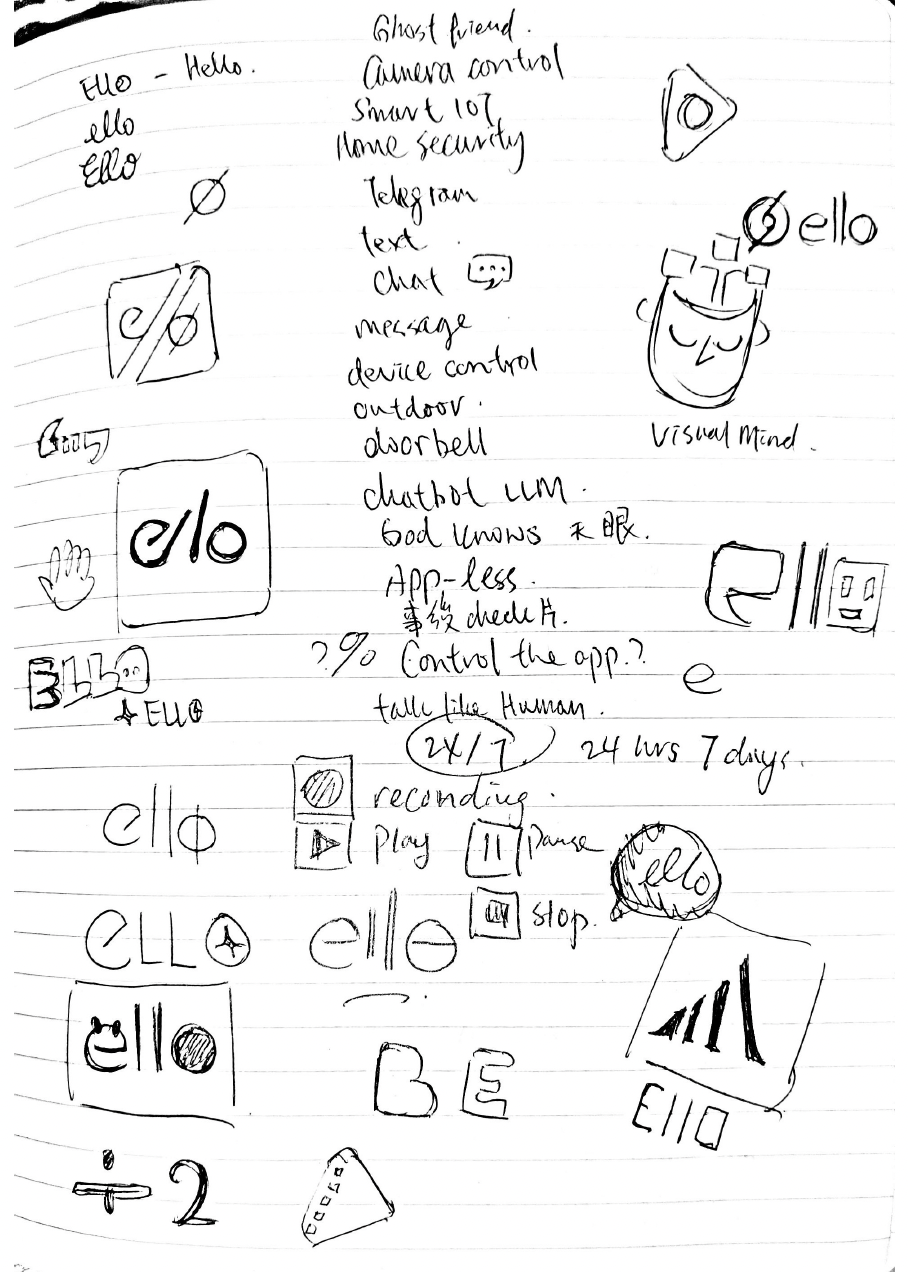 Ghost friend.
Ello - Hello.
Camera control
ello
Smart IOT
Ello
Home security
Telegram
text
ello
chat
message
device control
outdoor.
doorbell
Visual Mind.
ello
chatbot LLM.
God knows 天眼.
App-less.
ello
事後 check 片.
?% Control the app.?
e
ELLO
ELLO
talk like Human.
24/7 24 hrs 7 days.
recording.
ello
play
pause
ello
stop.
ELLO
ello
ello
B E
Ello
÷2